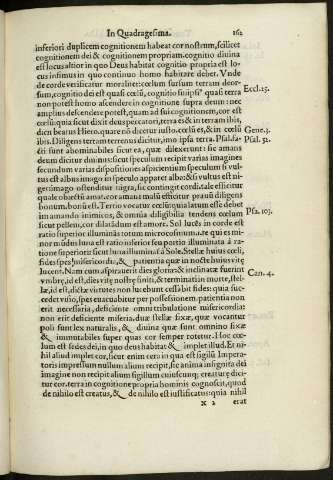 In Quadragesima. 162
inferiori duplicem cognitionem habeat cor nostrum, scilicet
cognitionem dei & cognitionem propriam. cognitio diuina
est locus altior in quo Deus habitat cognitio propria est lo
cus infimus in quo continuo homo habitare debet. Vnde
de corde verificatur moraliter: cœlum sursum terram deor-
sum, cognitio dei est quasi cœlū, cognitio suiipsi⁹ quasi terra
non potest homo ascendere in cognitione supra deum: nec
amplius descendere potest, quam ad sui cognitionem, cor est
cœlū: quia sicut dixit deus peccatori, terra es & in terram ibit,
dicit beatus Hiero. quare nō dicetur iusto. cœlū es, & in cœlū
ibis. Diligens terram terrenus dicitur, imo ipsa terra. Psal. fa-
cti sunt abominabiles sicut ea, quæ dilexerunt: sic amans
deum dicitur diuinus: sicut speculum recipit varias imagines
secundum varias dispositiones aspicientium speculum si vul-
tus est albus imago in speculo apparet albo: & si vultus est ni-
ger: imago ostenditur nigra, sic contingit cordi. tale efficitur
quale obiectū amat. cor amans malū efficitur prauū diligens
bonum, bonū est. Tertio vocatur cœlū: quia latum esse debet
in amando inimicos, & omnia diligibilia tendens cœlum
sicut pellem, cor dilatādum est amore. Sol lucēs in corde est
ratio superior illuminās totum microcosmum .i. re qui es mi-
nor mūdus luna est ratio inferior seu portio illuminata á ra-
tione superiori: sicut luna illuminatur à Sole. Stellæ huius cœli,
fides spes misericordia, & patientia quæ in nocte huius vitę
lucent. Nam cum aspirauerit dies gloriæ: & inclinatæ fuerint
vmbræ, id est, dies vitę nostræ finiti, & terminati in morte, stel-
læ, id est, dictæ virtutes non lucebunt cessabit fides: quia suc-
cedet visio, spes euacuabitur per possessionem. patientia non
erit necessaria, deficiente omni tribulatione misericordia
non erit deficiente miseria. duæ stellæ fixæ, quæ vocantur
poli sunt lex naturalis, & diuina quæ sunt omnino fixæ
& immutabiles super quas cor semper rotetur. Hoc cœ-
lum est sedes dei, in quo deus habitat & implet illud. Et ni-
hil aliud implet cor, sicut enim cera in qua est sigillū Impera-
toris impressum nullum alium recipit, sic anima insignita dei
imagine non recipit alium sigillum cuiuscunq; creaturæ dici-
tur cor. terra in cognitione propria hominis cognoscit, quod
de nihilo est creatus, & de nihilo est iustificatus: quia nihil
X 2 erat
Eccl. 25.
Gene. 3.
Psal. 52.
Psa. 103.
Can. 4.